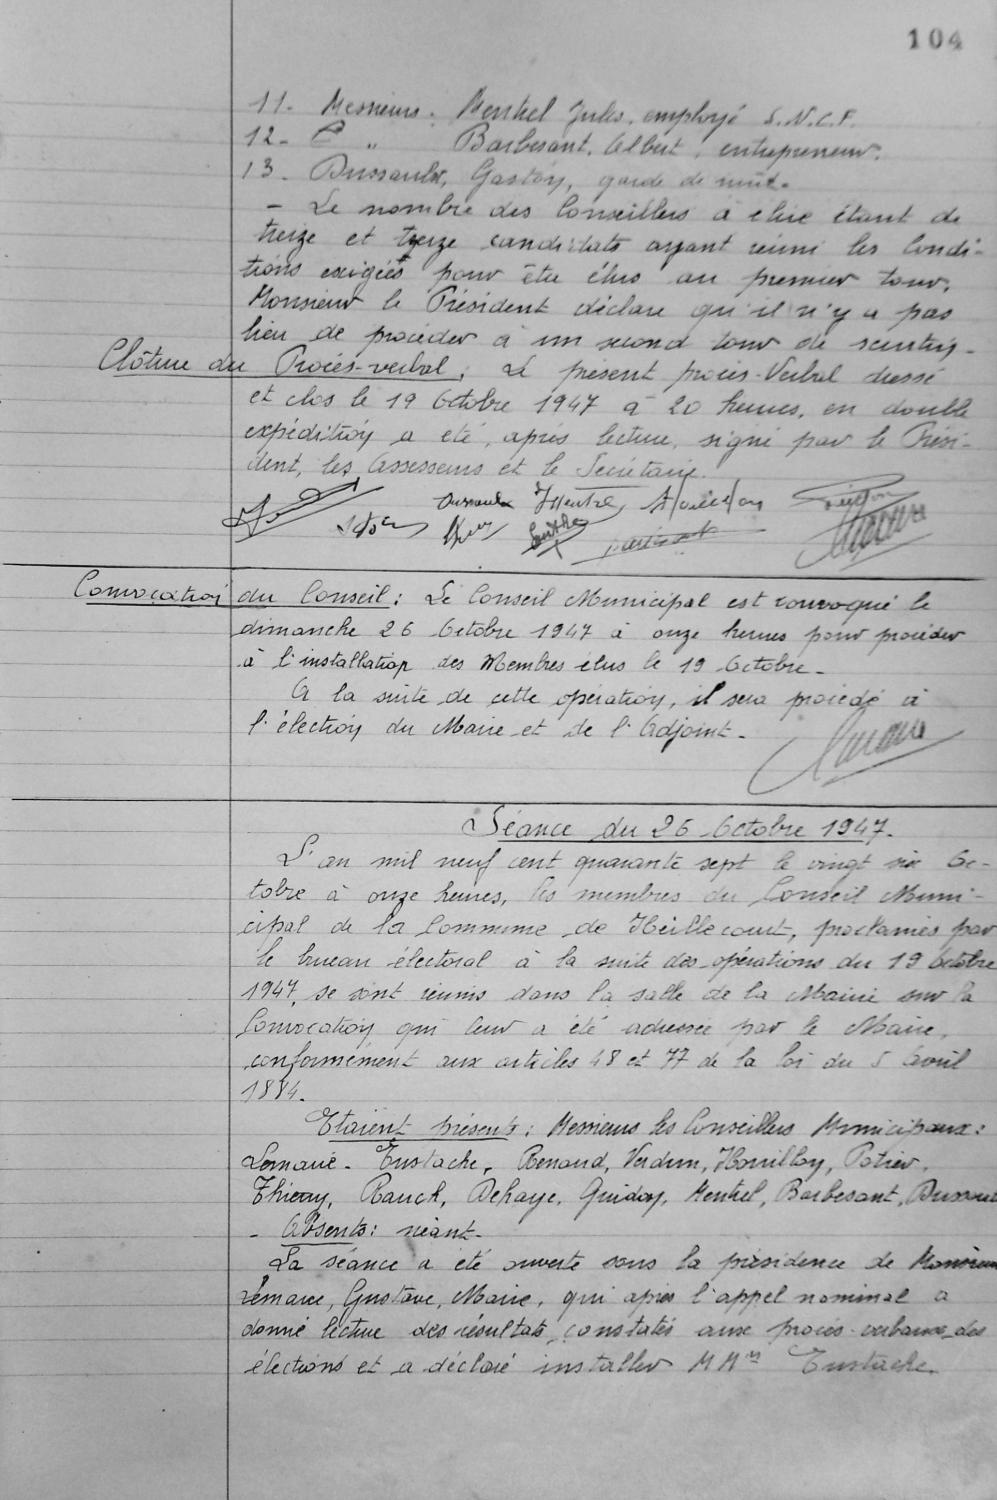 104
11. Messieurs. Henkel Jules, employé S.N.C.F.
12. d° " Barbesant, Albert, entrepreneur.
13. Dussaulx, Gaston, garde de nuit.
- Le nombre des Conseillers à élire étant de
treize et treize candidats ayant réuni les Condi-
tions exigées pour être élus au premier tour,
Monsieur le Président déclare qu'il n'y a pas
lieu de procéder à un second tour de scrutin.
Clôture du Procès-verbal: Le présent procès-Verbal dressé
et clos le 19 Octobre 1947 à 20 heures, en double
expédition a été, après lecture, signé par le Prési-
dent, les Assesseurs et le Secrétaire.
Convocation du Conseil: Le Conseil Municipal est convoqué le
dimanche 26 Octobre 1947 à onze heures pour procéder
à l'installation des Membres élus le 19 Octobre.
A la suite de cette opération, il sera procédé à
l'élection du Maire et de l'Adjoint.
Séance du 26 Octobre 1947.
L'an mil neuf cent quarante sept le vingt six Oc-
tobre à onze heures, les membres du Conseil Muni-
cipal de la Commune de Heillecourt, proclamés par
le bureau électoral à la suite des opérations du 19 Octobre
1947, se sont réunis dans la salle de la Mairie sur la
Convocation qui leur a été adressée par le Maire,
conformément aux articles 48 et 77 de la loi du 5 Avril
1884.
Etaient présents: Messieurs les Conseillers Municipaux:
Lemaire. Eustache, Renaud, Verdun, Houillon, Potier,
Thierry, Rauch, Dehaye, Guidon, Henkel, Barbesant,
- Absents: néant.
La séance a été ouverte sous la présidence de Monsieur
Lemaire, Gustave, Maire, qui après l'appel nominal a
donné lecture des résultats constatés aux procès-verbaux des
élections et a déclaré installer MMrs Eustache.